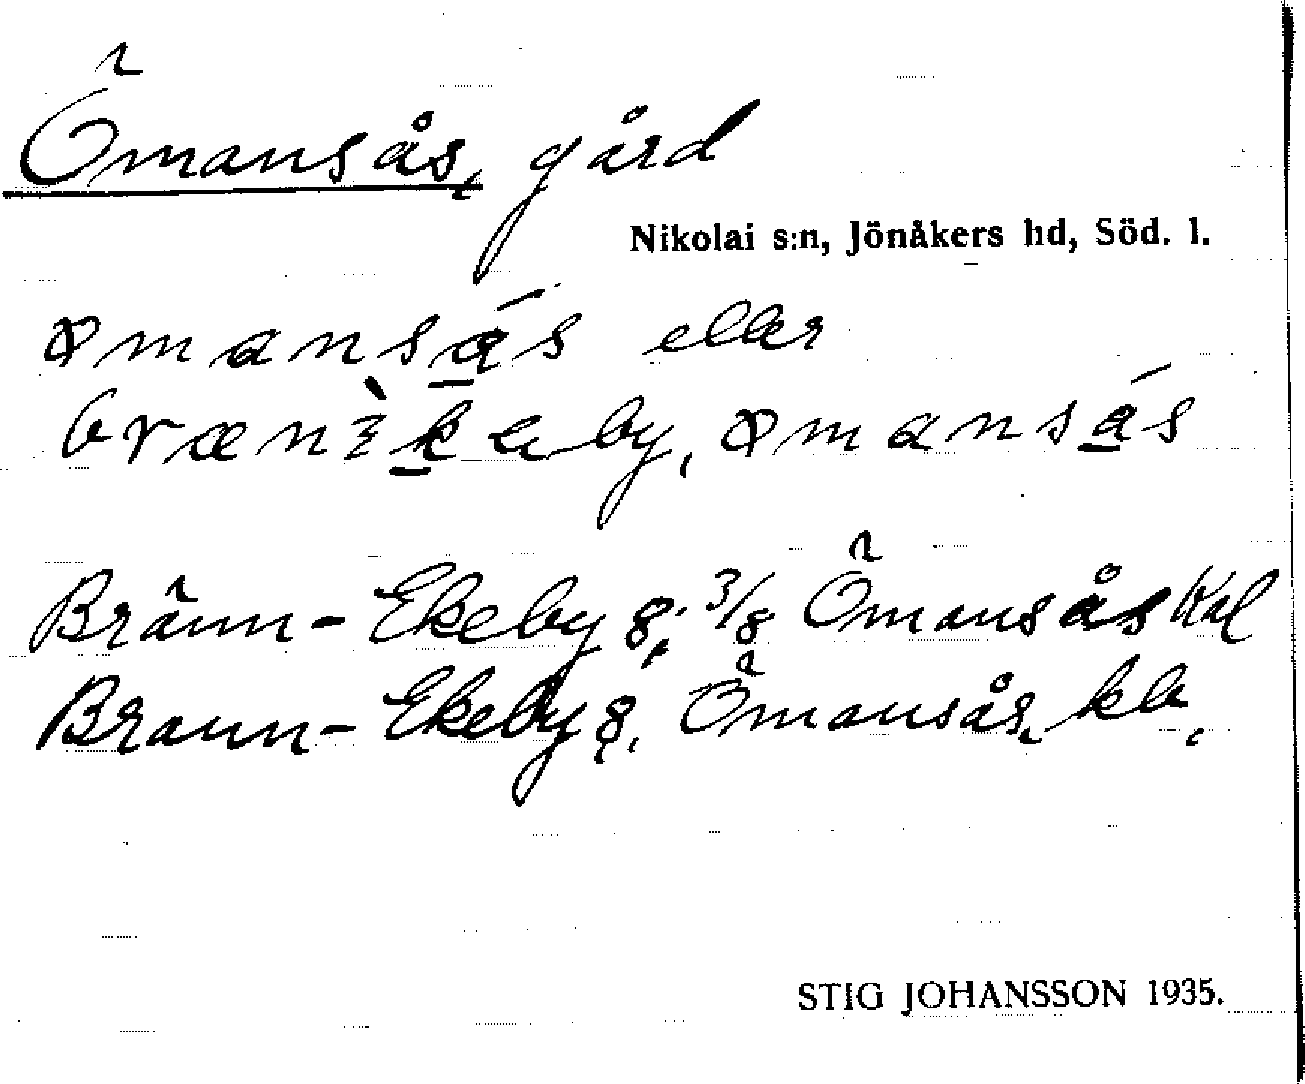 Ömansås, gård
Nikolai s:n, Jönåkers hd, Söd. l.
ømansás eller
brænìkeby, ømansás
Bränn-Ekeby g, 3/8 Ömansås Kal
Brann-Ekeby g, Ömansås, kb,
STIG JOHANSSON 1935.